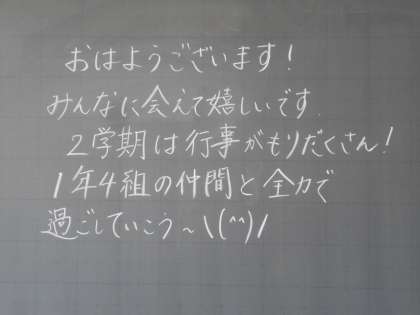 おはようございます!
みんなに会えて嬉しいです.
2学期は行事がもりだくさん!
1年4組の仲間と全力で
過ごしていこう~\(^^)/